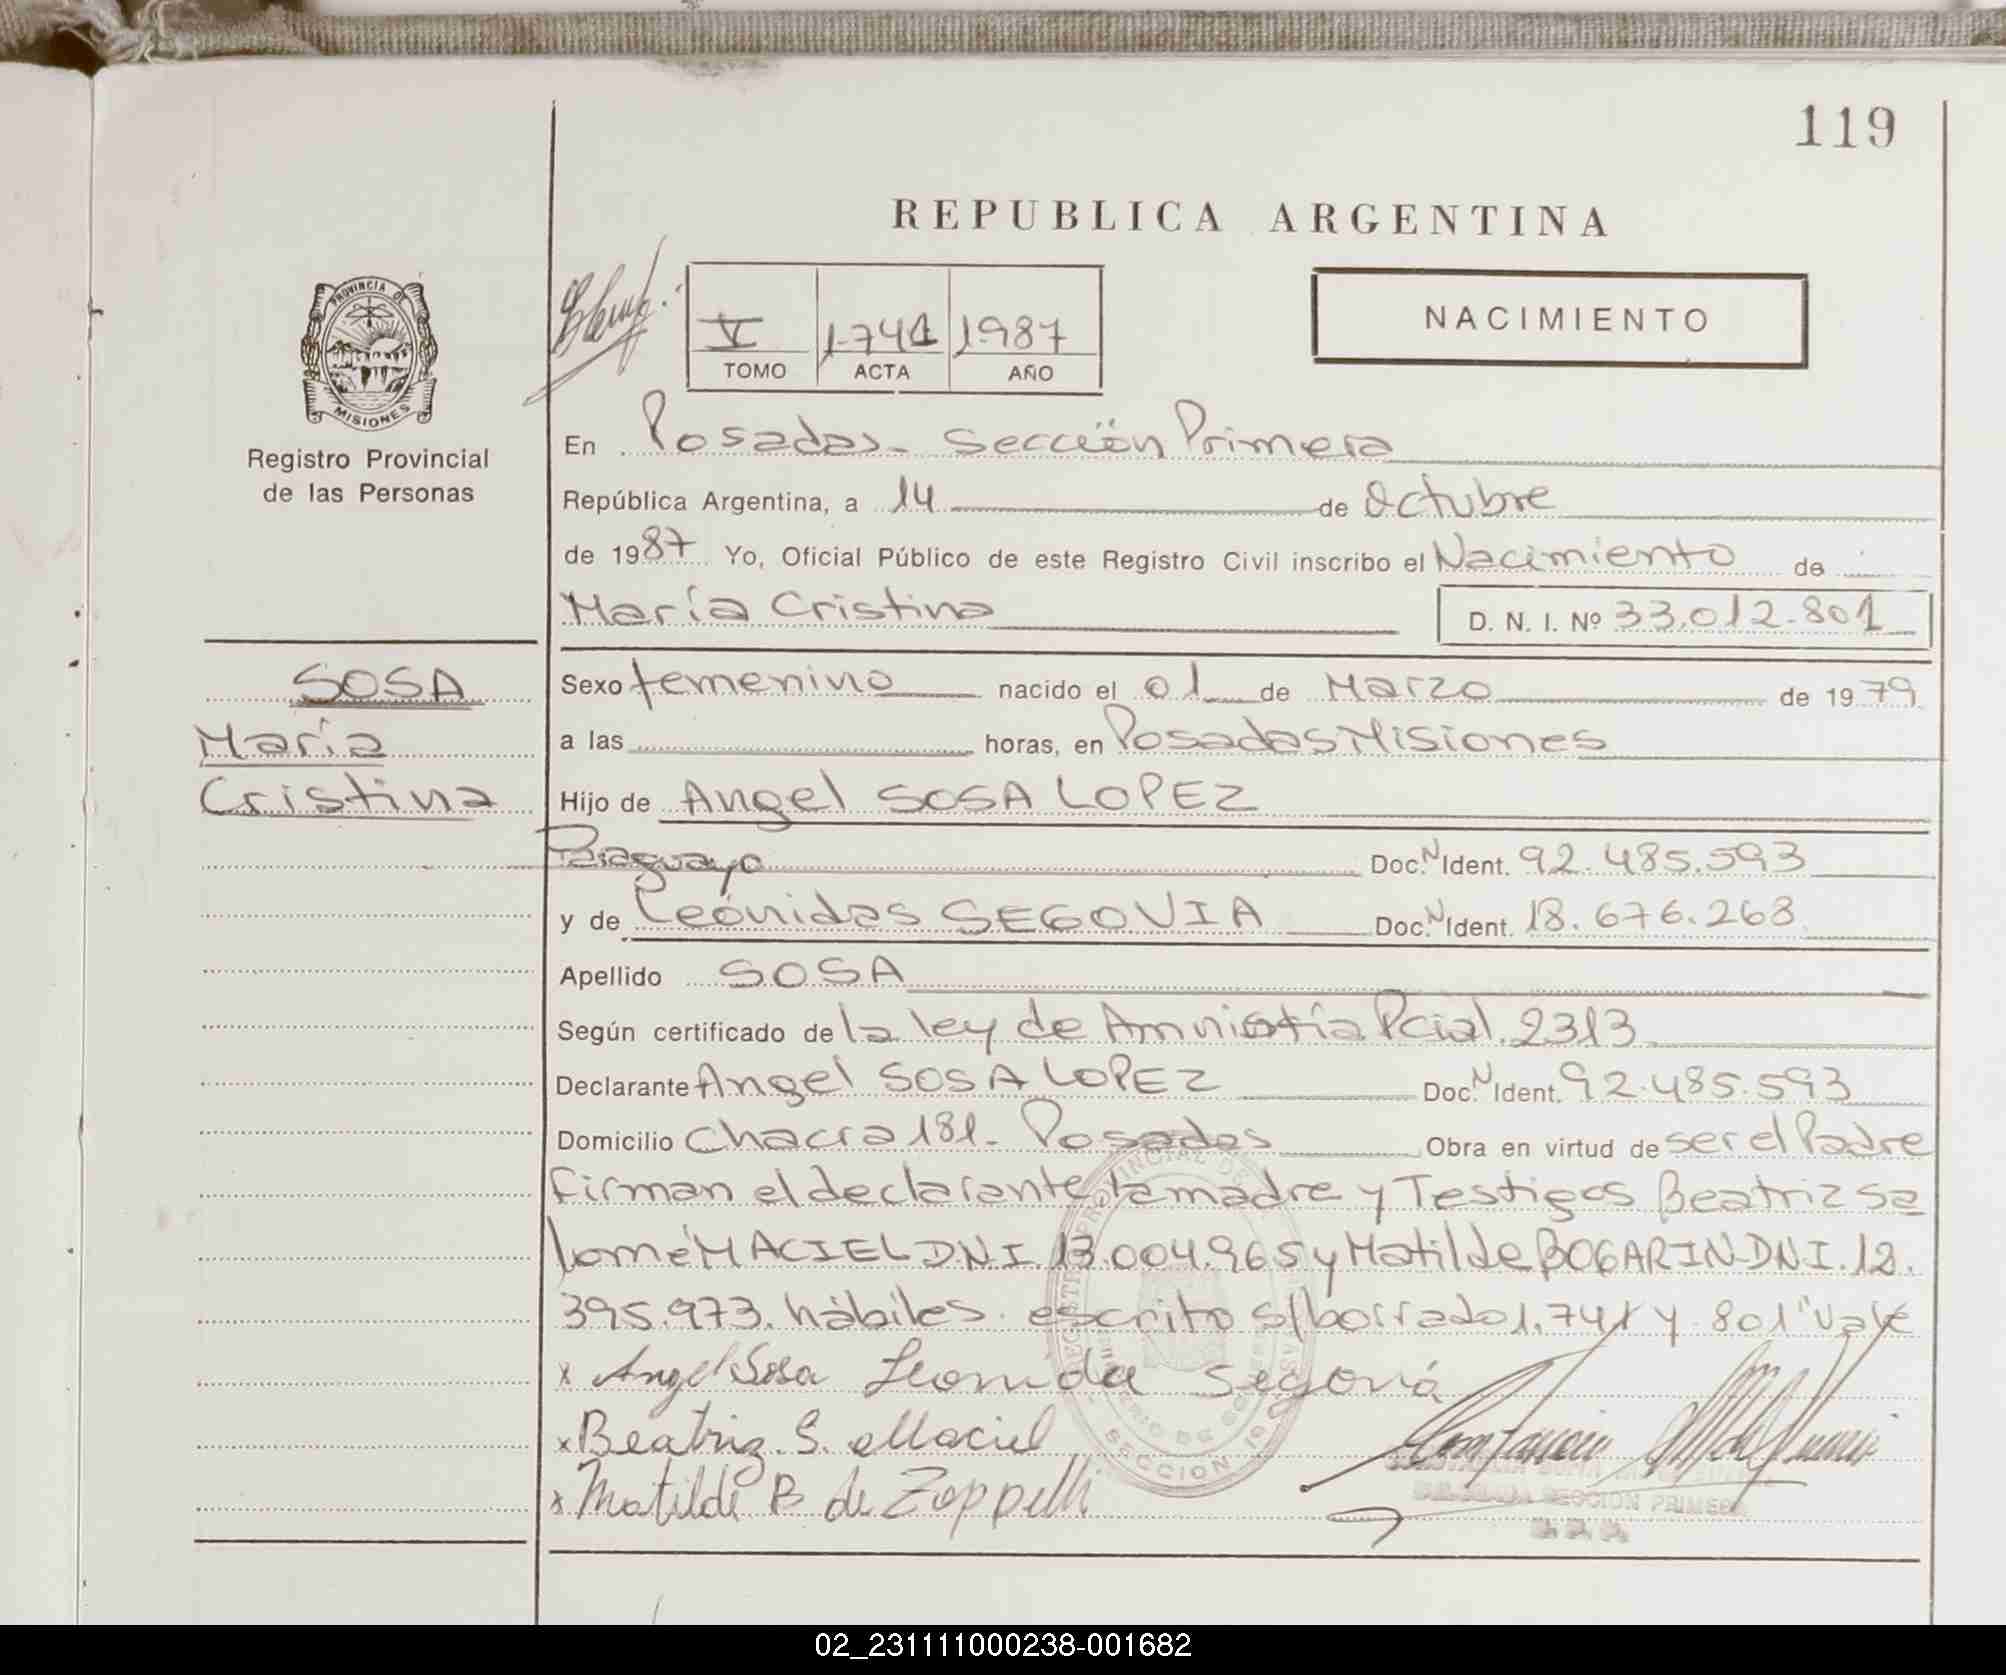 119
REPUBLICA ARGENTINA
V 1.741 1987
TOMO ACTA AÑO
NACIMIENTO
PROVINCIA DE
MISIONES
Registro Provincial
de las Personas
En Posadas - Sección Primera
República Argentina, a 14 de Octubre
de 1987 Yo, Oficial Público de este Registro Civil inscribo el Nacimiento de
María Cristina D. N. I. Nº 33.012.801
SOSA
María
Cristina
Sexo femenino nacido el 01 de Marzo de 1979
a las horas, en Posadas Misiones
Hijo de Angel SOSA LOPEZ
Paraguayo Doc. N Ident. 92.485.593
y de Leónidas SEGOVIA Doc. N Ident. 18.676.268
Apellido SOSA
Según certificado de la ley de Amnistía Pcial. 2313
Declarante Angel SOSA LOPEZ Doc. N Ident. 92.485.593
Domicilio Chacra 181 - Posadas Obra en virtud de ser el Padre
Firman el declarante, la madre y Testigos Beatriz Sa
lomé MACIEL D.N.I. 13.004.965 y Matilde BOGARIN D.N.I. 12.
395.973. hábiles. escrito s/borrado 1.741 y 801" Vale
x Angel Sosa Leonida Segoviá
x Beatriz S. Maciel
x Matilde B de Zoppelli
SECCION PRIMERA
02_231111000238-001682